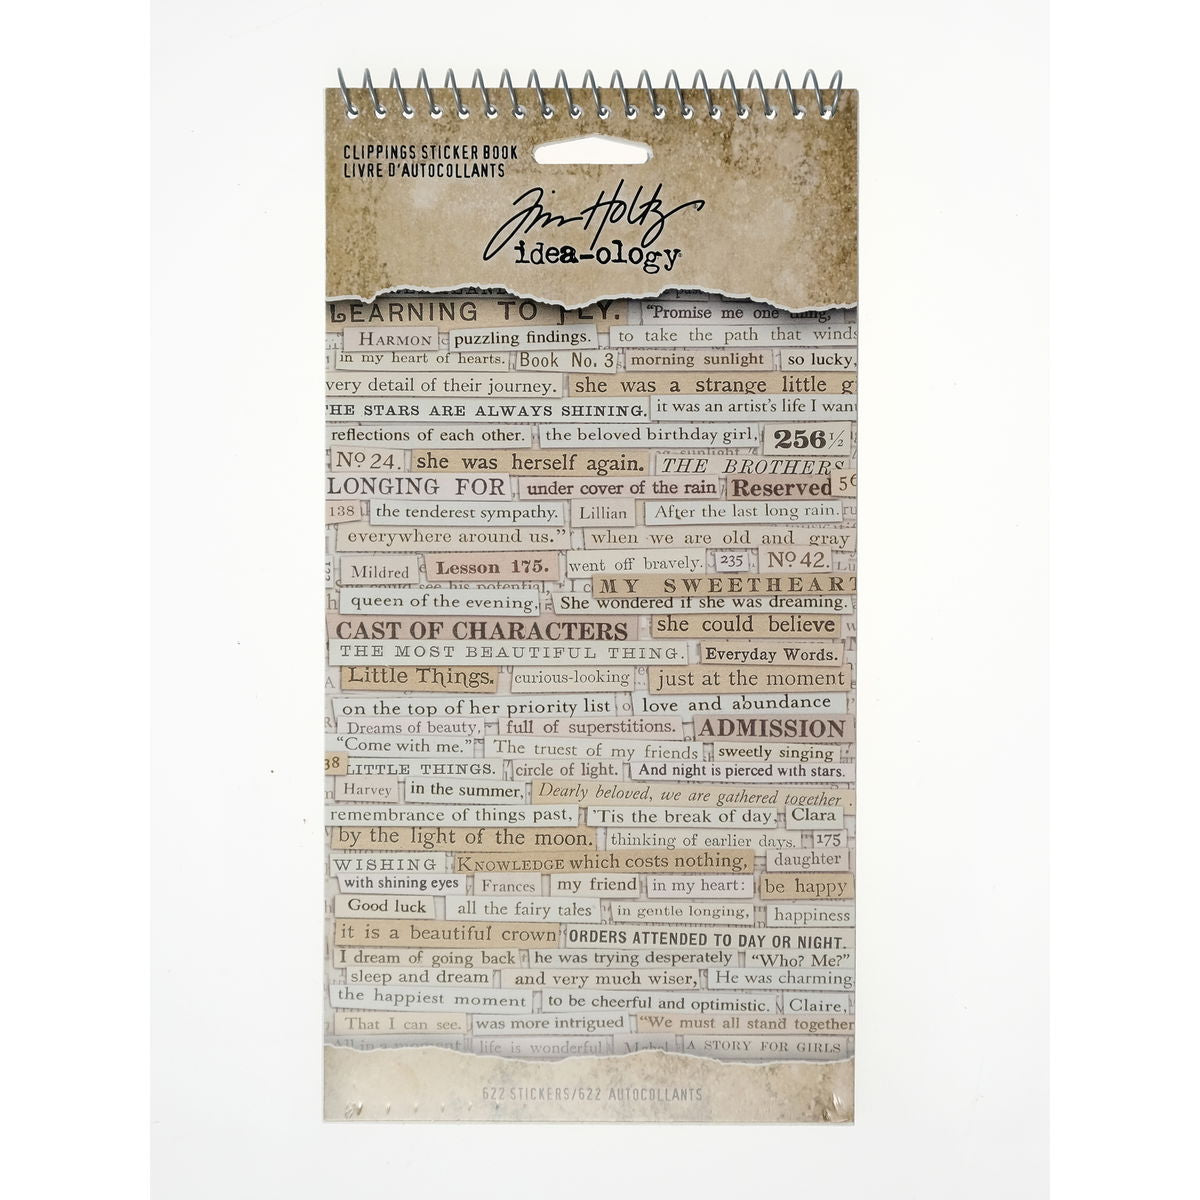 CLIPPINGS STICKER BOOK
LIVRE D'AUTOCOLLANTS
Tim Holtz
idea-ology
LEARNING TO FLY. "Promise me one thing,
HARMON puzzling findings. to take the path that winds
in my heart of hearts. Book No. 3 morning sunlight so lucky,
very detail of their journey. she was a strange little
THE STARS ARE ALWAYS SHINING. it was an artist's life I want
reflections of each other. the beloved birthday girl, 256½
No 24. she was herself again. THE BROTHERS
LONGING FOR under cover of the rain Reserved 56
138 the tenderest sympathy. Lillian After the last long rain.
everywhere around us." when we are old and gray
Mildred Lesson 175. went off bravely. 235 No 42.
she could see his potential, MY SWEETHEART
queen of the evening, She wondered if she was dreaming.
CAST OF CHARACTERS she could believe
THE MOST BEAUTIFUL THING. Everyday Words.
Little Things. curious-looking just at the moment
on the top of her priority list love and abundance
Dreams of beauty, full of superstitions. ADMISSION
"Come with me." The truest of my friends sweetly singing
38 LITTLE THINGS. circle of light. And night is pierced with stars.
Harvey in the summer, Dearly beloved, we are gathered together
remembrance of things past, 'Tis the break of day, Clara
by the light of the moon. thinking of earlier days. 175
WISHING KNOWLEDGE which costs nothing, daughter
with shining eyes Frances my friend in my heart: be happy
Good luck all the fairy tales in gentle longing, happiness
it is a beautiful crown ORDERS ATTENDED TO DAY OR NIGHT.
I dream of going back he was trying desperately "Who? Me?"
sleep and dream and very much wiser, He was charming
the happiest moment to be cheerful and optimistic. Claire,
That I can see. was more intrigued "We must all stand together
All in a moment life is wonderful Mabel A STORY FOR GIRLS
622 STICKERS/622 AUTOCOLLANTS